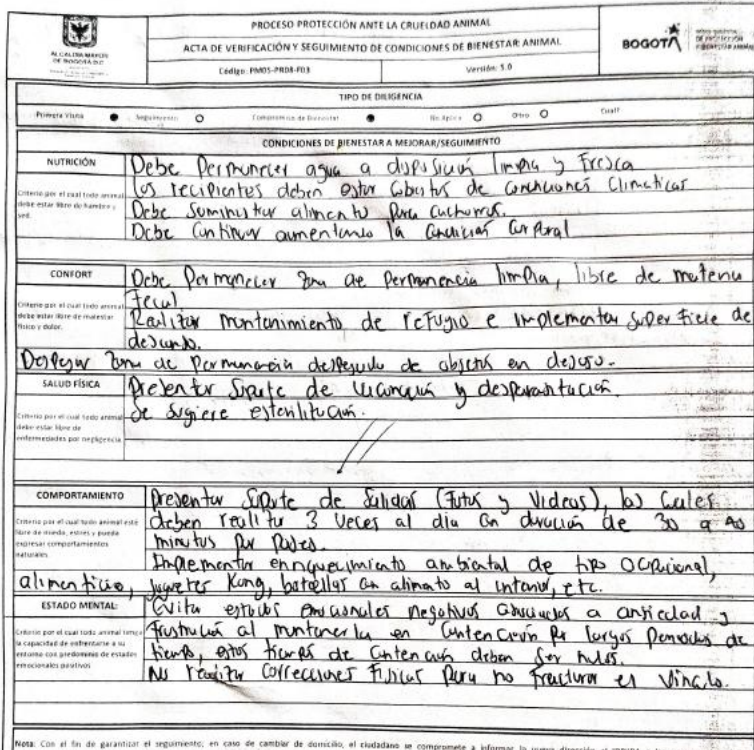 ALCALDÍA MAYOR
DE BOGOTÁ D.C.
PROCESO PROTECCIÓN ANTE LA CRUELDAD ANIMAL
ACTA DE VERIFICACIÓN Y SEGUIMIENTO DE CONDICIONES DE BIENESTAR ANIMAL
Código: PM05-PR08-F03 Versión: 5.0
BOGOTÁ
TIPO DE DILIGENCIA
Primera Visita Seguimiento Compromiso de Bienestar No Aplica Otro Cuál?
CONDICIONES DE BIENESTAR A MEJORAR/SEGUIMIENTO
NUTRICIÓN
Criterio por el cual todo animal debe estar libre de hambre y sed.
Debe Permanecer agua a disposición limpia y Fresca
los recipientes deben estar cubiertos de condiciones Climaticas
Debe Suministrar alimento para cachorros.
Debe Continuar aumentando la Condición Corporal
CONFORT
Criterio por el cual todo animal debe estar libre de malestar físico y dolor.
Debe Permanecer zona de permanencia limpia, libre de materia
fecal.
Realizar mantenimiento de refugio e implementar superficie de
descanso.
Despejar zona de permanencia despejado de objetos en desuso.
SALUD FÍSICA
Criterio por el cual todo animal debe estar libre de enfermedades por negligencia
Presentar Soporte de vacunación y desparasitación.
Se sugiere esterilización.
COMPORTAMIENTO
Criterio por el cual todo animal esté libre de miedo, estrés y pueda expresar comportamientos naturales.
Presentar Soporte de Salidas (Fotos y Videos), las Cuales
deben realizar 3 veces al día con duración de 30 a 40
minutos por paseo.
Implementar enriquecimiento ambiental de tipo Ocupacional,
alimenticio, juguetes Kong, botellas con alimento al interior, etc.
ESTADO MENTAL
Criterio por el cual todo animal tenga la capacidad de enfrentarse a su entorno con predominio de estados emocionales positivos
Evitar estados emocionales negativos asociados a ansiedad y
frustración al mantenerla en Contención por largos Periodos de
tiempo, estos tiempos de Contención deben Ser nulos.
No realizar Correcciones Físicas Para no Fracturar el Vínculo.
Nota: Con el fin de garantizar el seguimiento; en caso de cambiar de domicilio, el ciudadano se compromete a informar la nueva dirección